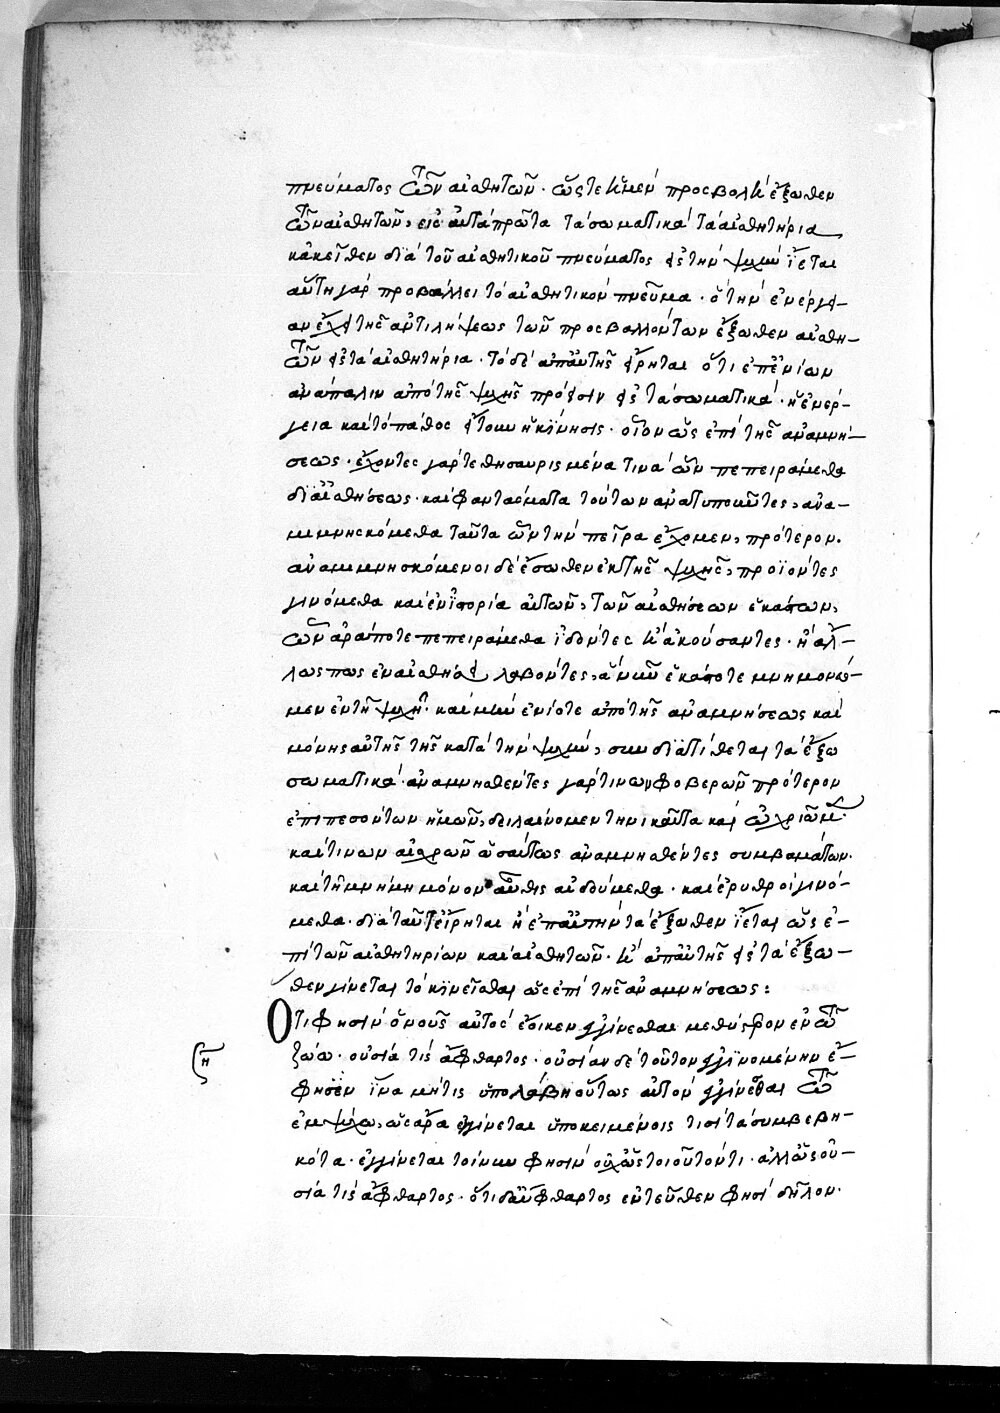 πνεύματος τῶν αἰσθητῶν · ὥς τε ἡ μὲν προσβολὴ ἔξωθεν
τῶν αἰσθητῶν, εἰς αὐτὰ πρῶτα τὰ σωματικὰ τὰ αἰσθητήρια
κἀκεῖθεν διὰ τοῦ αἰσθητικοῦ πνεύματος εἰς τὴν ψυχὴν ἵεται
αὕτη γὰρ προβάλλει τὸ αἰσθητικὸν πνεῦμα · ὃ τὴν ἐνέργει-
αν ἔχει τῆς ἀντιλήψεως τῶν προσβαλλόντων ἔξωθεν αἰσθη-
τῶν εἰς τὰ αἰσθητήρια · τὸ δὲ ἀπ' αὐτῆς εἴρηται ὅτι ἐπ' ἐνίων
ἀνάπαλιν ἀπὸ τῆς ψυχῆς πρόεισιν εἰς τὰ σωματικὰ · ἡ ἐνέρ-
γεια καὶ τὸ πάθος ἤτουν ἡ κίνησις · οἷον ὡς ἐπὶ τῆς ἀναμνή-
σεως · ἔχοντες γάρ τε θησαυρισμένα τινὰ ὧν πεπειράμεθα
δι' αἰσθήσεως · καὶ φαντάσματα τούτων ἀνατυποῦντες, ἀνα-
μιμνησκόμεθα ταῦτα ὧν τὴν πεῖρα εἴχομεν, πρότερον.
ἀναμιμνησκόμενοι δὲ ἔσωθεν ἐκ τῆς ψυχῆς, προϊόντες
γινόμεθα καὶ ἐν ἱστορία αὐτῶν, τῶν αἰσθήσεων ἑκάστων,
ὧν ἄρα ποτε πεπειράμεθα ἰδόντες ἢ ἀκούσαντες · ἢ ἄλ-
λως πως ἐν αἰσθήσει λαβόντες, ἃ νῦν ἑκάστοτε μνημονεύο-
μεν ἐν τῇ ψυχῇ · καὶ μὴν ἐνίοτε ἀπὸ τῆς ἀναμνήσεως καὶ
μόνης αὐτῆς τῆς κατὰ τὴν ψυχὴν, συνδιατίθεται τὰ ἔξω
σωματικὰ · ἀναμνησθέντες γάρ τινων φοβερῶν πρότερον
ἐπιπεσόντων ἡμῶν, δειλαίνομεν τηνικαῦτα καὶ ὠχριῶμεν ·
καὶ τινων αἰσχρῶν ὡσαύτως ἀναμνησθέντες συμβαμάτων.
καὶ τῇ μνήμη μόνον αὖθις αἰδούμεθα · καὶ ἐρυθροὶ γινό-
μεθα · διὰ ταῦτ' εἴρηται ἢ ἐπ' αὐτὴν τὰ ἔξωθεν ἵεται ὡς ἐ-
πὶ τῶν αἰσθητηρίων καὶ αἰσθητῶν · ἢ ἀπ' αὐτῆς εἰς τὰ ἔξω-
θεν γίνεται τὸ κινεῖσθαι ὡς ἐπὶ τῆς ἀναμνήσεως :
Ὅτι φησὶν ὁ νοῦς αὐτὸς ἔοικεν ἐγγίνεσθαι μεθύστερον ἐν τῷ
ζώω · οὐσία τίς ἄφθαρτος · οὐσίαν δὲ τοῦτον ἐγγινομένην ἔ-
φησεν ἵνα μή τις ὑπολάβη οὕτως αὐτὸν ἐγγίνεσθαι τῷ
ἐμψύχω, ὡς ἄρα ἐγγίνεται ὑποκειμένοις τισὶ τὰ συμβεβη-
κότα · ἐγγίνεται τοίνυν φησὶν οὐχ ὡς τοιοῦτόν τι · ἀλλ' ὡς οὐ-
σία τίς ἄφθαρτος · ὅτι δ' ἄφθαρτος ἐντεῦθεν φησὶ δῆλον ·